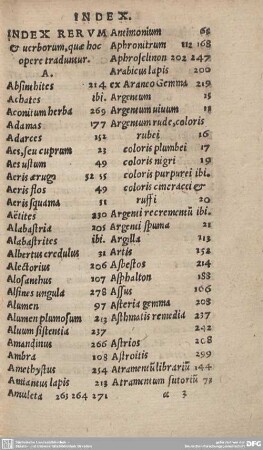 INDEX.
INDEX RERVM
& uerborum, quæ hoc
opere traduntur.
A.
Absinthites 214
Achates ibi.
Aconitum herba 269
Adamas 177
Adarces 152
Aes, seu cuprum 23
Aes ustum 49
Aeris ærugo 52 55
Aeris flos 49
Aeris squama 51
Aëtites 230
Alabastria 205
Alabastrites ibi.
Albertus credulus 31
Alectorius 206
Alosanthus 107
Alsines ungula 278
Alumen 97
Alumen plumosum 213
Aluum sistentia 237
Amandinus 266
Ambra 108
Amethystus 254
Amianus lapis 213
Amuleta 263 264 271
Antimonium 68
Aphronitrum 112 168
Aphroselinon 202 247
Arabicus lapis 200
ex Araneo Gemma 219
Argentum 15
Argentum uiuum 18
Argentum rude, coloris
rubei 16
coloris plumbei 17
coloris nigri 19
coloris purpurei ibi.
coloris cineracei &
ruffi 20
Argenti recrementũ ibi.
Argenti spuma 21
Argilla 113
Artis 152
Asbestos 214
Asphalton 188
Assus 106
Asteria gemma 208
Asthmatis remedia 237
242
Astrios 208
Astroitis 299
Atramentũ librariũ 144
Atramentum sutoriũ 78
a 3